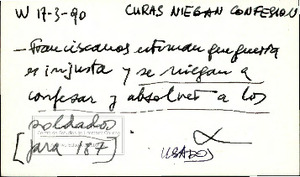 W 17-3-90 CURAS NIEGAN CONFESION
- Franciscanos estiman que guerra
es injusta y se niegan a
confesar y absolver a los
soldados
[Jara 187]
USADOS